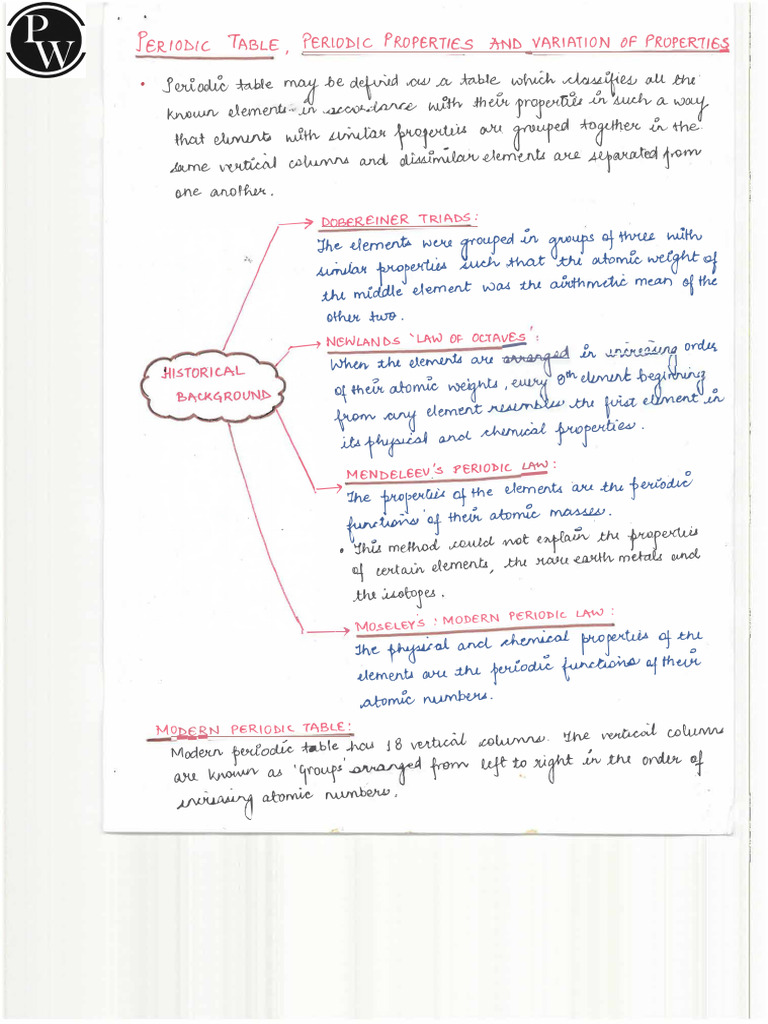 PW
PERIODIC TABLE, PERIODIC PROPERTIES AND VARIATION OF PROPERTIES
• Periodic table may be defined as a table which classifies all the
known elements in accordance with their properties in such a way
that elements with similar properties are grouped together in the
same vertical columns and dissimilar elements are separated from
one another.
HISTORICAL
BACKGROUND
DOBEREINER TRIADS:
The elements were grouped in groups of three with
similar properties such that the atomic weight of
the middle element was the airthmetic mean of the
other two.
NEWLANDS 'LAW OF OCTAVES':
When the elements are arranged in increasing order
of their atomic weights, every 8th element beginning
from any element resembles the first element in
its physical and chemical properties.
MENDELEEV'S PERIODIC LAW:
The properties of the elements are the periodic
functions of their atomic masses.
• This method could not explain the properties
of certain elements, the rare earth metals and
the isotopes.
MOSELEY'S: MODERN PERIODIC LAW:
The physical and chemical properties of the
elements are the periodic functions of their
atomic numbers.
MODERN PERIODIC TABLE:
Modern periodic table has 18 vertical columns. The vertical columns
are known as 'Groups' arranged from left to right in the order of
increasing atomic numbers.